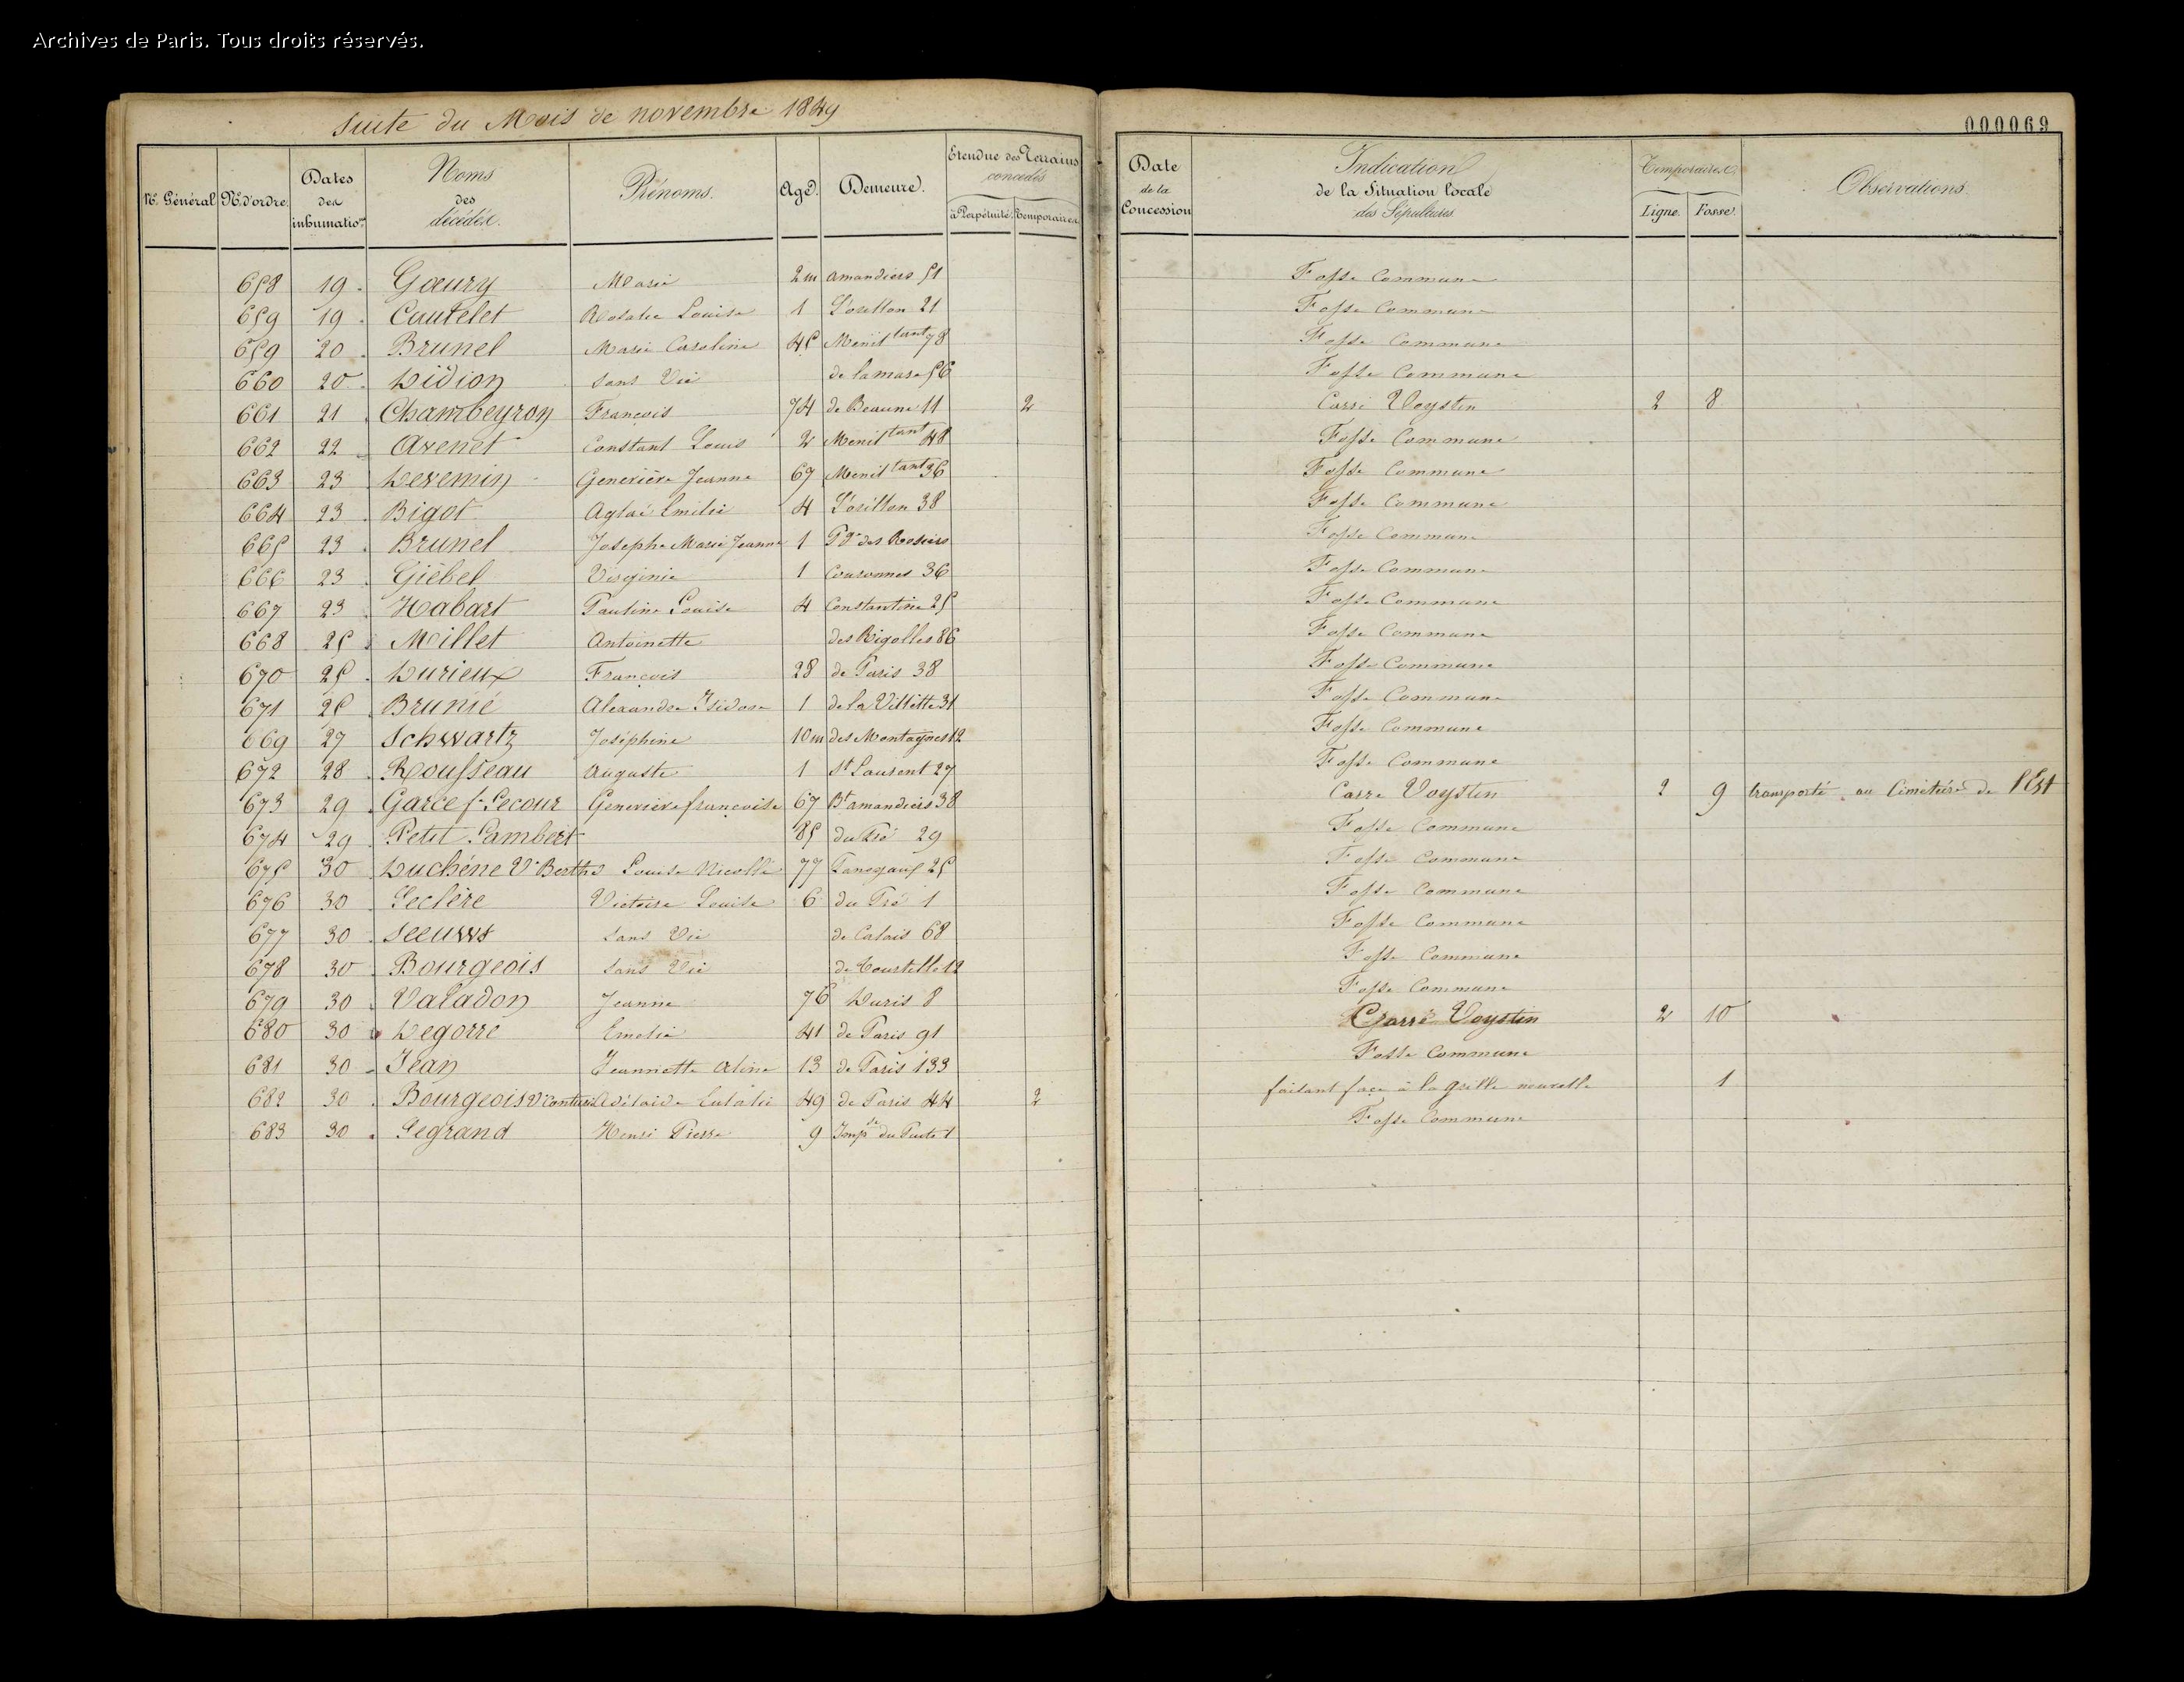 Archives de Paris. Tous droits réservés.
Suite du Mois de novembre 1849
000069
N.º Général N.º d'ordre. Dates des inhumations Noms des décédés. Prénoms. Age. Demeure. Etendue des Terrains concédés à Perpétuité. Temporaires Date de la Concession Indication de la Situation locale des Sépultures Temporaires Ligne. Fosse. Observations.
658 19 Gœury Marie 2m amandiers 51 Fosse Commune
659 19 Cautelet Rosalie Louise 1 L'orillon 21 Fosse Commune
659 20 Brunel Marie Caroline 45 Ménil tant 78 Fosse Commune
660 20 Didion Sans Vie de la mare 56 Fosse Commune
661 21 Chambeyron François 74 de Beaune 11 2 Carré Voystin 2 8
662 22 Avenet Constant Louis 2 Menil tant 48 Fosse Commune
663 23 Devemin Geneviève Jeanne 67 Menil tant 36 Fosse Commune
664 23 Bigot Aglaé Emilie 4 L'orillon 38 Fosse Commune
665 23 Brunel Josephe Marie Jeanne 1 des Rosiers Fosse Commune
666 23 Giébel Virginie 1 Couronnes 36 Fosse Commune
667 23 Habart Pauline Louise 4 Constantine 25 Fosse Commune
668 25 Millet Antoinette des Rigolles 86 Fosse Commune
670 25 Durieux François 28 de Paris 38 Fosse Commune
671 25 Brunié Alexandre Isidore 1 de la Villette 31 Fosse Commune
669 27 Schwartz Joséphine 10m des Montagnes 12 Fosse Commune
672 28 Rousseau Auguste 1 St Laurent 27 Fosse Commune
673 29 Garce f. Lecour Geneviève françoise 67 Bt amandiers 38 Carré Voystin 2 9 transporté au Cimétière de l'Est
674 29 Petit Lambert 85 du Pré 29 Fosse Commune
675 30 Duchéne Ve Berthe Louise Nicolle 77 25 Fosse Commune
676 30 Leclère Victoire Louise 6 du Pré 1 Fosse Commune
677 30 Seeuws Sans Vie de Calais 68 Fosse Commune
678 30 Bourgeois Sans Vie de Tourtelle 12 Fosse Commune
679 30 Valadon Jeanne 76 Duris 8 Fosse Commune
680 30 Degorre Emelie 41 de Paris 91 Carré Voystin 2 10
681 30 Jean Jeannette Aline 13 de Paris 133 Fosse Commune
682 30 Bourgeois Adélaide Eulalie 49 de Paris 44 2 faisant face à la grille nouvelle 1
683 30 Legrand Henri Pierre 9 Impse du Puits 1 Fosse Commune